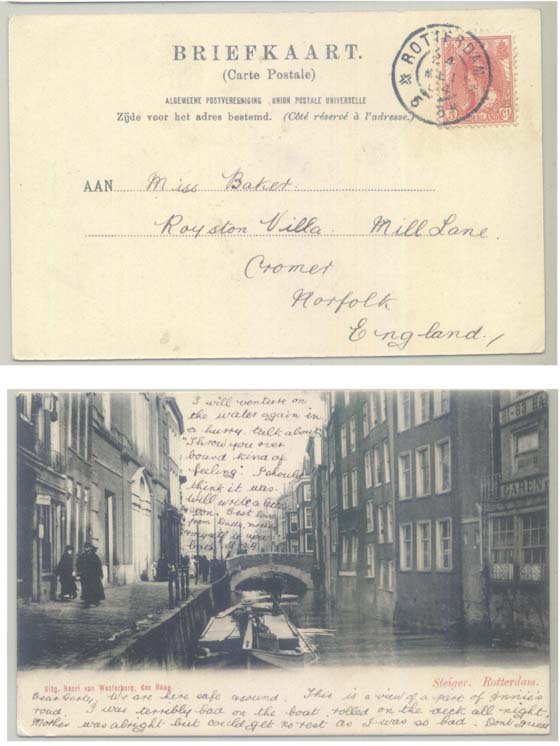 BRIEFKAART.
(Carte Postale)
ALGEMEENE POSTVEREENIGING UNION POSTALE UNIVERSELLE
Zijde voor het adres bestemd. (Côté réservé à l'adresse.)
ROTTERDAM
AAN Miss Baker.
Royston Villa. Mill Lane.
Cromer
Norfolk
England.
I will venture on
the water again in
a hurry. talk about
"Throw you over
board kind of
feeling" I should
think it was.
will write a letter
soon. Best love
from
myself
Uitg. van den Haag
Steiger. Rotterdam.
Dear Gerty, We are here safe & sound. This is a view of a part of Annie's
road. I was terribly bad on the boat, rolled on the deck all night.
Mother was alright but could get no rest as I was so bad. Don't guess